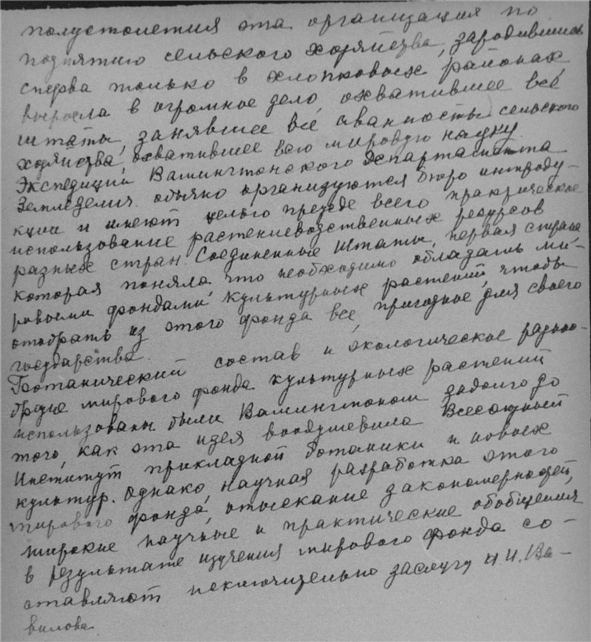 полустолетия эта организация по
поднятию сельского хозяйства, зародившись
сперва только в хлопковых районах
выросла в огромное дело, охватившее все
штаты, занявшее все отрасли сельского
хозяйства, охватившее всю мировую науку.
Экспедиции Вашингтонского Департамента
Земледелия обычно организуются бюро интроду-
кции и имеют целью прежде всего практическое
использование растениеводственных ресурсов
разных стран. Соединенные Штаты, первая страна
которая поняла, что необходимо обладать ми-
ровыми фондами культурных растений, чтобы
отобрать из этого фонда все, пригодное для своего
государства.
Ботанический состав и экологическое разно-
образие мирового фонда культурных растений
использованы были Вашингтоном задолго до
того, как эта идея воодушевила Всесоюзный
Институт прикладной ботаники и новых
культур. Однако, научная разработка этого
мирового фонда, отыскание закономерностей,
широкие научные и практические обобщения
в результате изучения мирового фонда со-
ставляют исключительно заслугу Н.И. Ва-
вилова.